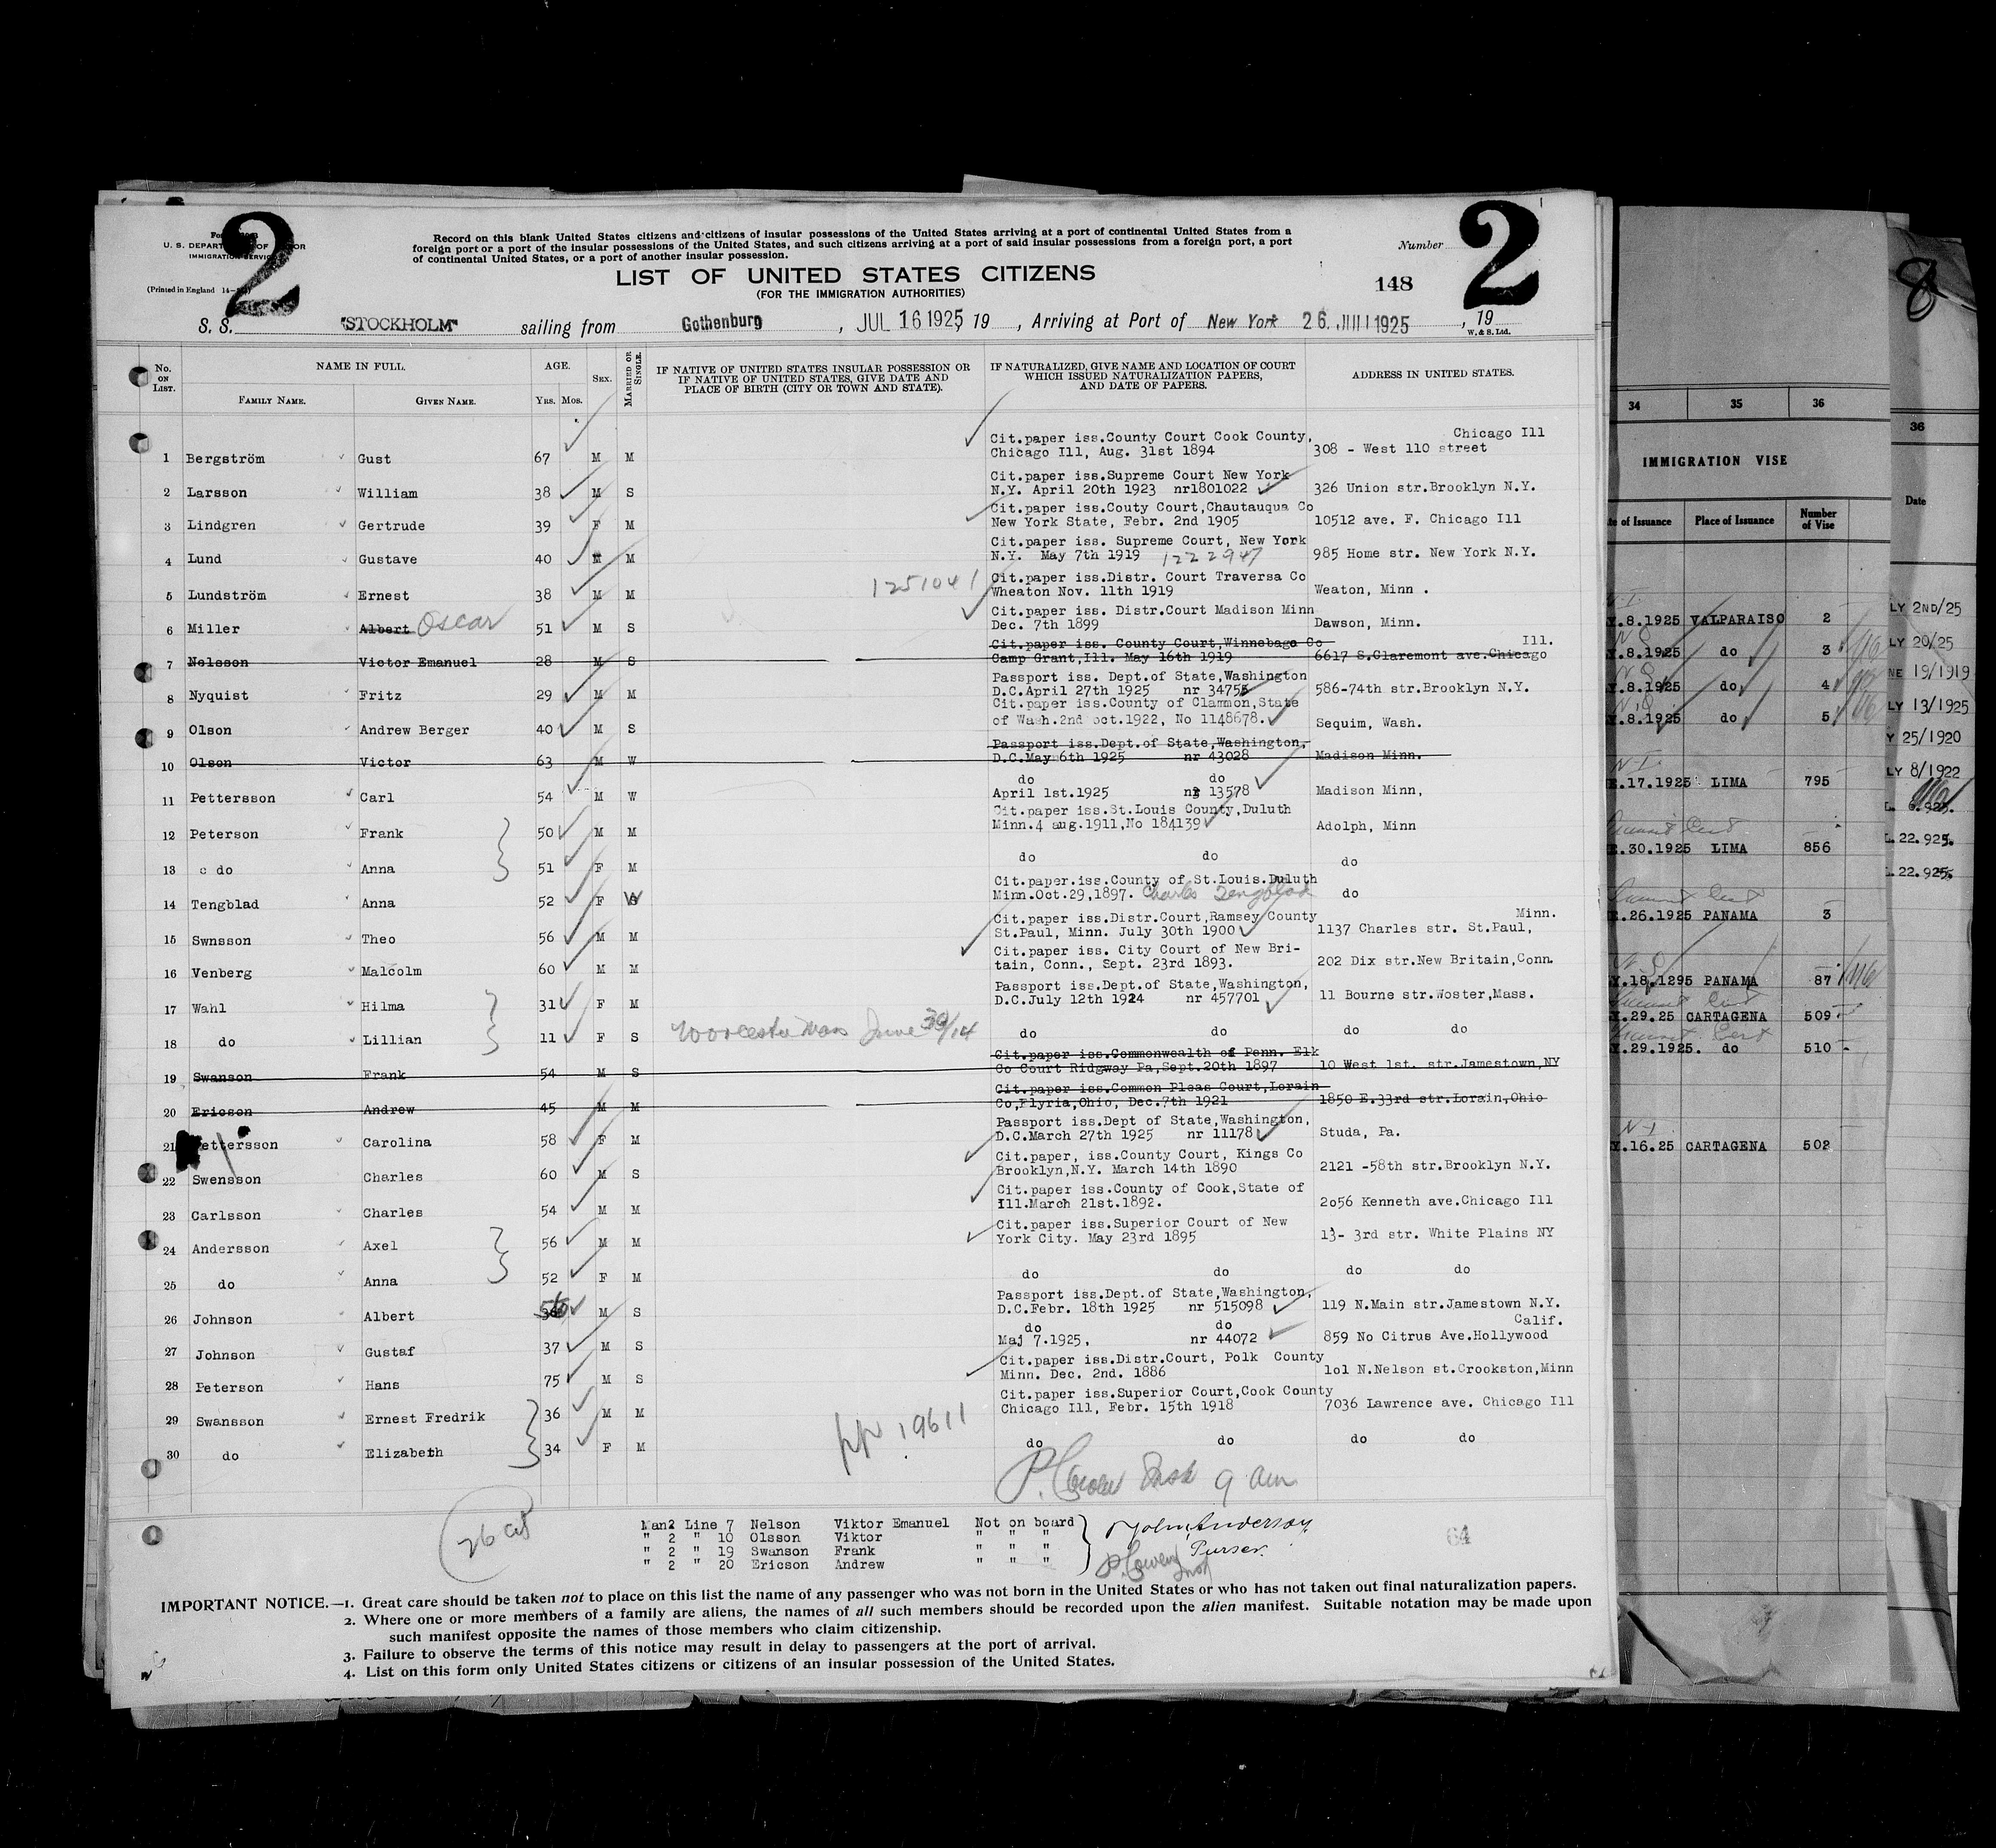 2
2
U. S. DEPART OF OR
IMMIGRATION SERVICE
(Printed in England
Record on this blank United States citizens and citizens of insular possessions of the United States arriving at a port of continental United States from a
foreign port or a port of the insular possessions of the United States, and such citizens arriving at a port of said insular possessions from a foreign port, a port
of continental United States, or a port of another insular possession.
Number
LIST OF UNITED STATES CITIZENS
(FOR THE IMMIGRATION AUTHORITIES)
148
S. S. "STOCKHOLM" sailing from Gothenburg, JUL 16 1925, 19 , Arriving at Port of New York 26 1925, 19
W. & S. Ltd.
No. ON LIST.
NAME IN FULL.
FAMILY NAME. GIVEN NAME.
AGE.
YRS. MOS.
SEX.
MARRIED OR SINGLE.
IF NATIVE OF UNITED STATES INSULAR POSSESSION OR
IF NATIVE OF UNITED STATES, GIVE DATE AND
PLACE OF BIRTH (CITY OR TOWN AND STATE).
IF NATURALIZED, GIVE NAME AND LOCATION OF COURT
WHICH ISSUED NATURALIZATION PAPERS,
AND DATE OF PAPERS.
ADDRESS IN UNITED STATES.
Cit.paper iss.County Court Cook County, Chicago Ill
1 Bergström Gust 67 M M Chicago Ill, Aug. 31st 1894 308 - West 110 street
Cit.paper iss.Supreme Court New York
2 Larsson William 38 M S N.Y. April 20th 1923 nr1801022 326 Union str.Brooklyn N.Y.
Cit.paper iss.Couty Court,Chautauqua Co
3 Lindgren Gertrude 39 F M New York State, Febr. 2nd 1905 10512 ave. F. Chicago Ill
Cit.paper iss. Supreme Court, New York
4 Lund Gustave 40 M M N.Y. May 7th 1919 1222947 985 Home str. New York N.Y.
Cit.paper iss.Distr. Court Traversa Co
5 Lundström Ernest 38 M M 1251041 Wheaton Nov. 11th 1919 Weaton, Minn .
Cit.paper iss. Distr.Court Madison Minn
6 Miller Albert Oscar 51 M S Dec. 7th 1899 Dawson, Minn.
Cit.paper iss. County Court,Winnebago Co Ill.
7 Nelsson Victor Emanuel 28 M S Camp Grant,Ill. May 16th 1919 6617 S.Claremont ave.Chicago
Passport iss. Dept.of State,Washington
8 Nyquist Fritz 29 M M D.C.April 27th 1925 nr 34755 586-74th str.Brooklyn N.Y.
Cit.paper iss.County of Clammon,State
9 Olson Andrew Berger 40 M S of Wash.2nd oct.1922, No 1148678. Sequim, Wash.
Passport iss.Dept.of State,Washington,
10 Olson Victor 63 M W D.C.May 6th 1925 nr 43028 Madison Minn.
do do
11 Pettersson Carl 54 M W April 1st.1925 nr 13578 Madison Minn,
Cit.paper iss.St.Louis County,Duluth
12 Peterson Frank 50 M M Minn.4 aug.1911,No 184139 Adolph, Minn
13 do Anna 51 F M do do do
Cit.paper.iss.County of St.Louis.Duluth
14 Tengblad Anna 52 F W Minn.Oct.29,1897. Charles Tengblad do
Cit.paper iss.Distr.Court,Ramsey County Minn.
15 Swnsson Theo 56 M M St.Paul, Minn. July 30th 1900 1137 Charles str. St.Paul,
Cit.paper iss. City Court of New Bri-
16 Venberg Malcolm 60 M M tain, Conn., Sept. 23rd 1893. 202 Dix str.New Britain,Conn.
Passport iss.Dept.of State,Washington,
17 Wahl Hilma 31 F M D.C.July 12th 1924 nr 457701 11 Bourne str.Woster,Mass.
18 do Lillian 11 F S Worcester Mass June 30/14 do do do do
Cit.paper iss.Commonwealth of Penn. Elk
19 Swanson Frank 54 M S Co Court Ridgway Pa,Sept.20th 1897 10 West 1st. str.Jamestown,NY
Cit.paper iss.Common Pleas Court,Lorain
20 Ericson Andrew 45 M M Co,Elyria,Ohio, Dec.7th 1921 1850 E.33rd str.Lorain,Ohio
Passport iss.Dept of State,Washington,
21 Pettersson Carolina 58 F M D.C.March 27th 1925 nr 11178 Studa, Pa.
Cit.paper, iss.County Court, Kings Co
22 Swensson Charles 60 M S Brooklyn,N.Y. March 14th 1890 2121 -58th str.Brooklyn N.Y.
Cit.paper iss.County of Cook,State of
23 Carlsson Charles 54 M M Ill.March 21st.1892. 2o56 Kenneth ave.Chicago Ill
Cit.paper iss.Superior Court of New
24 Andersson Axel 56 M M York City. May 23rd 1895 13- 3rd str. White Plains NY
25 do Anna 52 F M do do do do
Passport iss.Dept.of State,Washington,
26 Johnson Albert M S D.C.Febr. 18th 1925 nr 515098 119 N.Main str.Jamestown N.Y.
do do Calif.
27 Johnson Gustaf 37 M S Maj 7.1925, nr 44072 859 No Citrus Ave.Hollywood
Cit.paper iss.Distr.Court, Polk County
28 Peterson Hans 75 M S Minn. Dec. 2nd. 1886 1o1 N.Nelson st.Crookston,Minn
Cit.paper iss.Superior Court,Cook County
29 Swansson Ernest Fredrik 36 M M Chicago Ill, Febr. 15th 1918 7036 Lawrence ave. Chicago Ill
pp 19611
30 do Elizabeth 34 F M do do do do
9 am
26 cit
Man2 Line 7 Nelson Viktor Emanuel Not on board
" 2 " 10 Olsson Viktor " " "
" 2 " 19 Swanson Frank " " "
" 2 " 20 Ericson Andrew " " "
John Anderson
Purser.
64
IMPORTANT NOTICE.—1. Great care should be taken not to place on this list the name of any passenger who was not born in the United States or who has not taken out final naturalization papers.
2. Where one or more members of a family are aliens, the names of all such members should be recorded upon the alien manifest. Suitable notation may be made upon
such manifest opposite the names of those members who claim citizenship.
3. Failure to observe the terms of this notice may result in delay to passengers at the port of arrival.
4. List on this form only United States citizens or citizens of an insular possession of the United States.
34 35 36
IMMIGRATION VISE
of Issuance Place of Issuance Number of Vise
Y.8.1925 VALPARAISO 2
Y.8.1925 do 3
Y.8.1925 do 4
Y.8.1925 do 5
E.17.1925 LIMA 795
E.30.1925 LIMA 856
E.26.1925 PANAMA 3
Y.18.1295 PANAMA 87
Y.29.25 CARTAGENA 509
Y.29.1925. do 510
Y.16.25 CARTAGENA 502
8
36
Date
LY 2ND/25
LY 20/25
NE 19/1919
LY 13/1925
Y 25/1920
LY 8/1922
6.925.
22.925.
22.925.